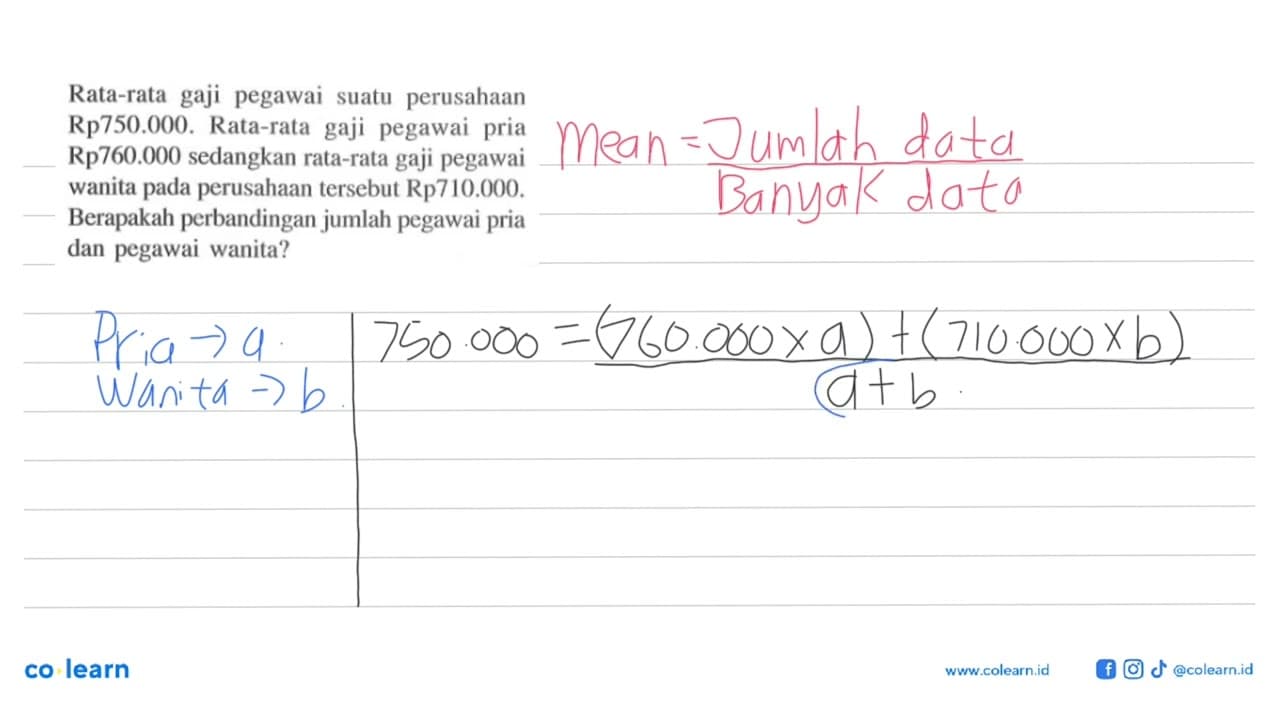 Rata-rata gaji pegawai suatu perusahaan
Rp750.000. Rata-rata gaji pegawai pria
Rp760.000 sedangkan rata-rata gaji pegawai
wanita pada perusahaan tersebut Rp710.000.
Berapakah perbandingan jumlah pegawai pria
dan pegawai wanita?
Mean = Jumlah data
Banyak data
Pria → a.
Wanita → b.
750.000 = (760.000 × a) + (710.000 × b)
a + b.
co·learn
www.colearn.id
@colearn.id